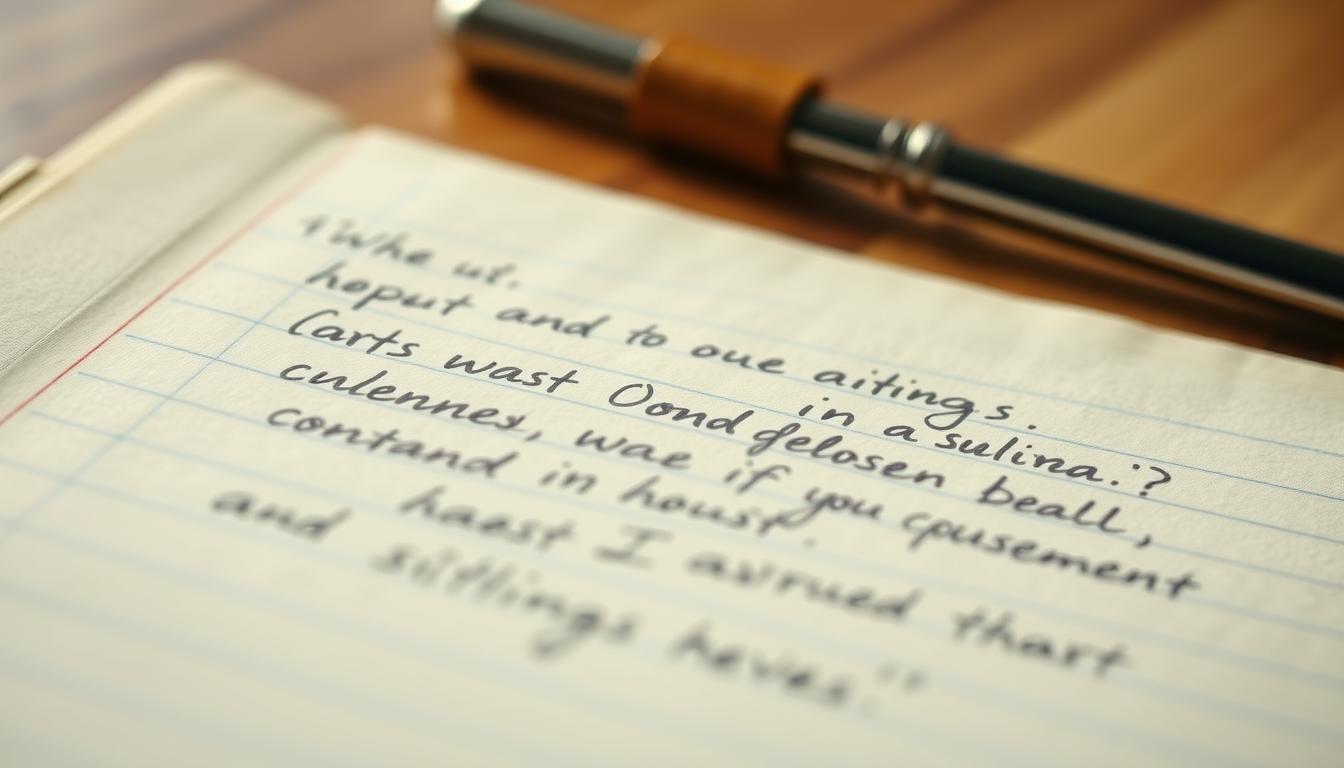 "Whe ut.
hoput and to oue aitings.
Carts wast Oond in a sulina.:?
culennes, wae if gelosen beall,
contand in houst. you cpusement
haest I avrued thart
and sitlings heves."